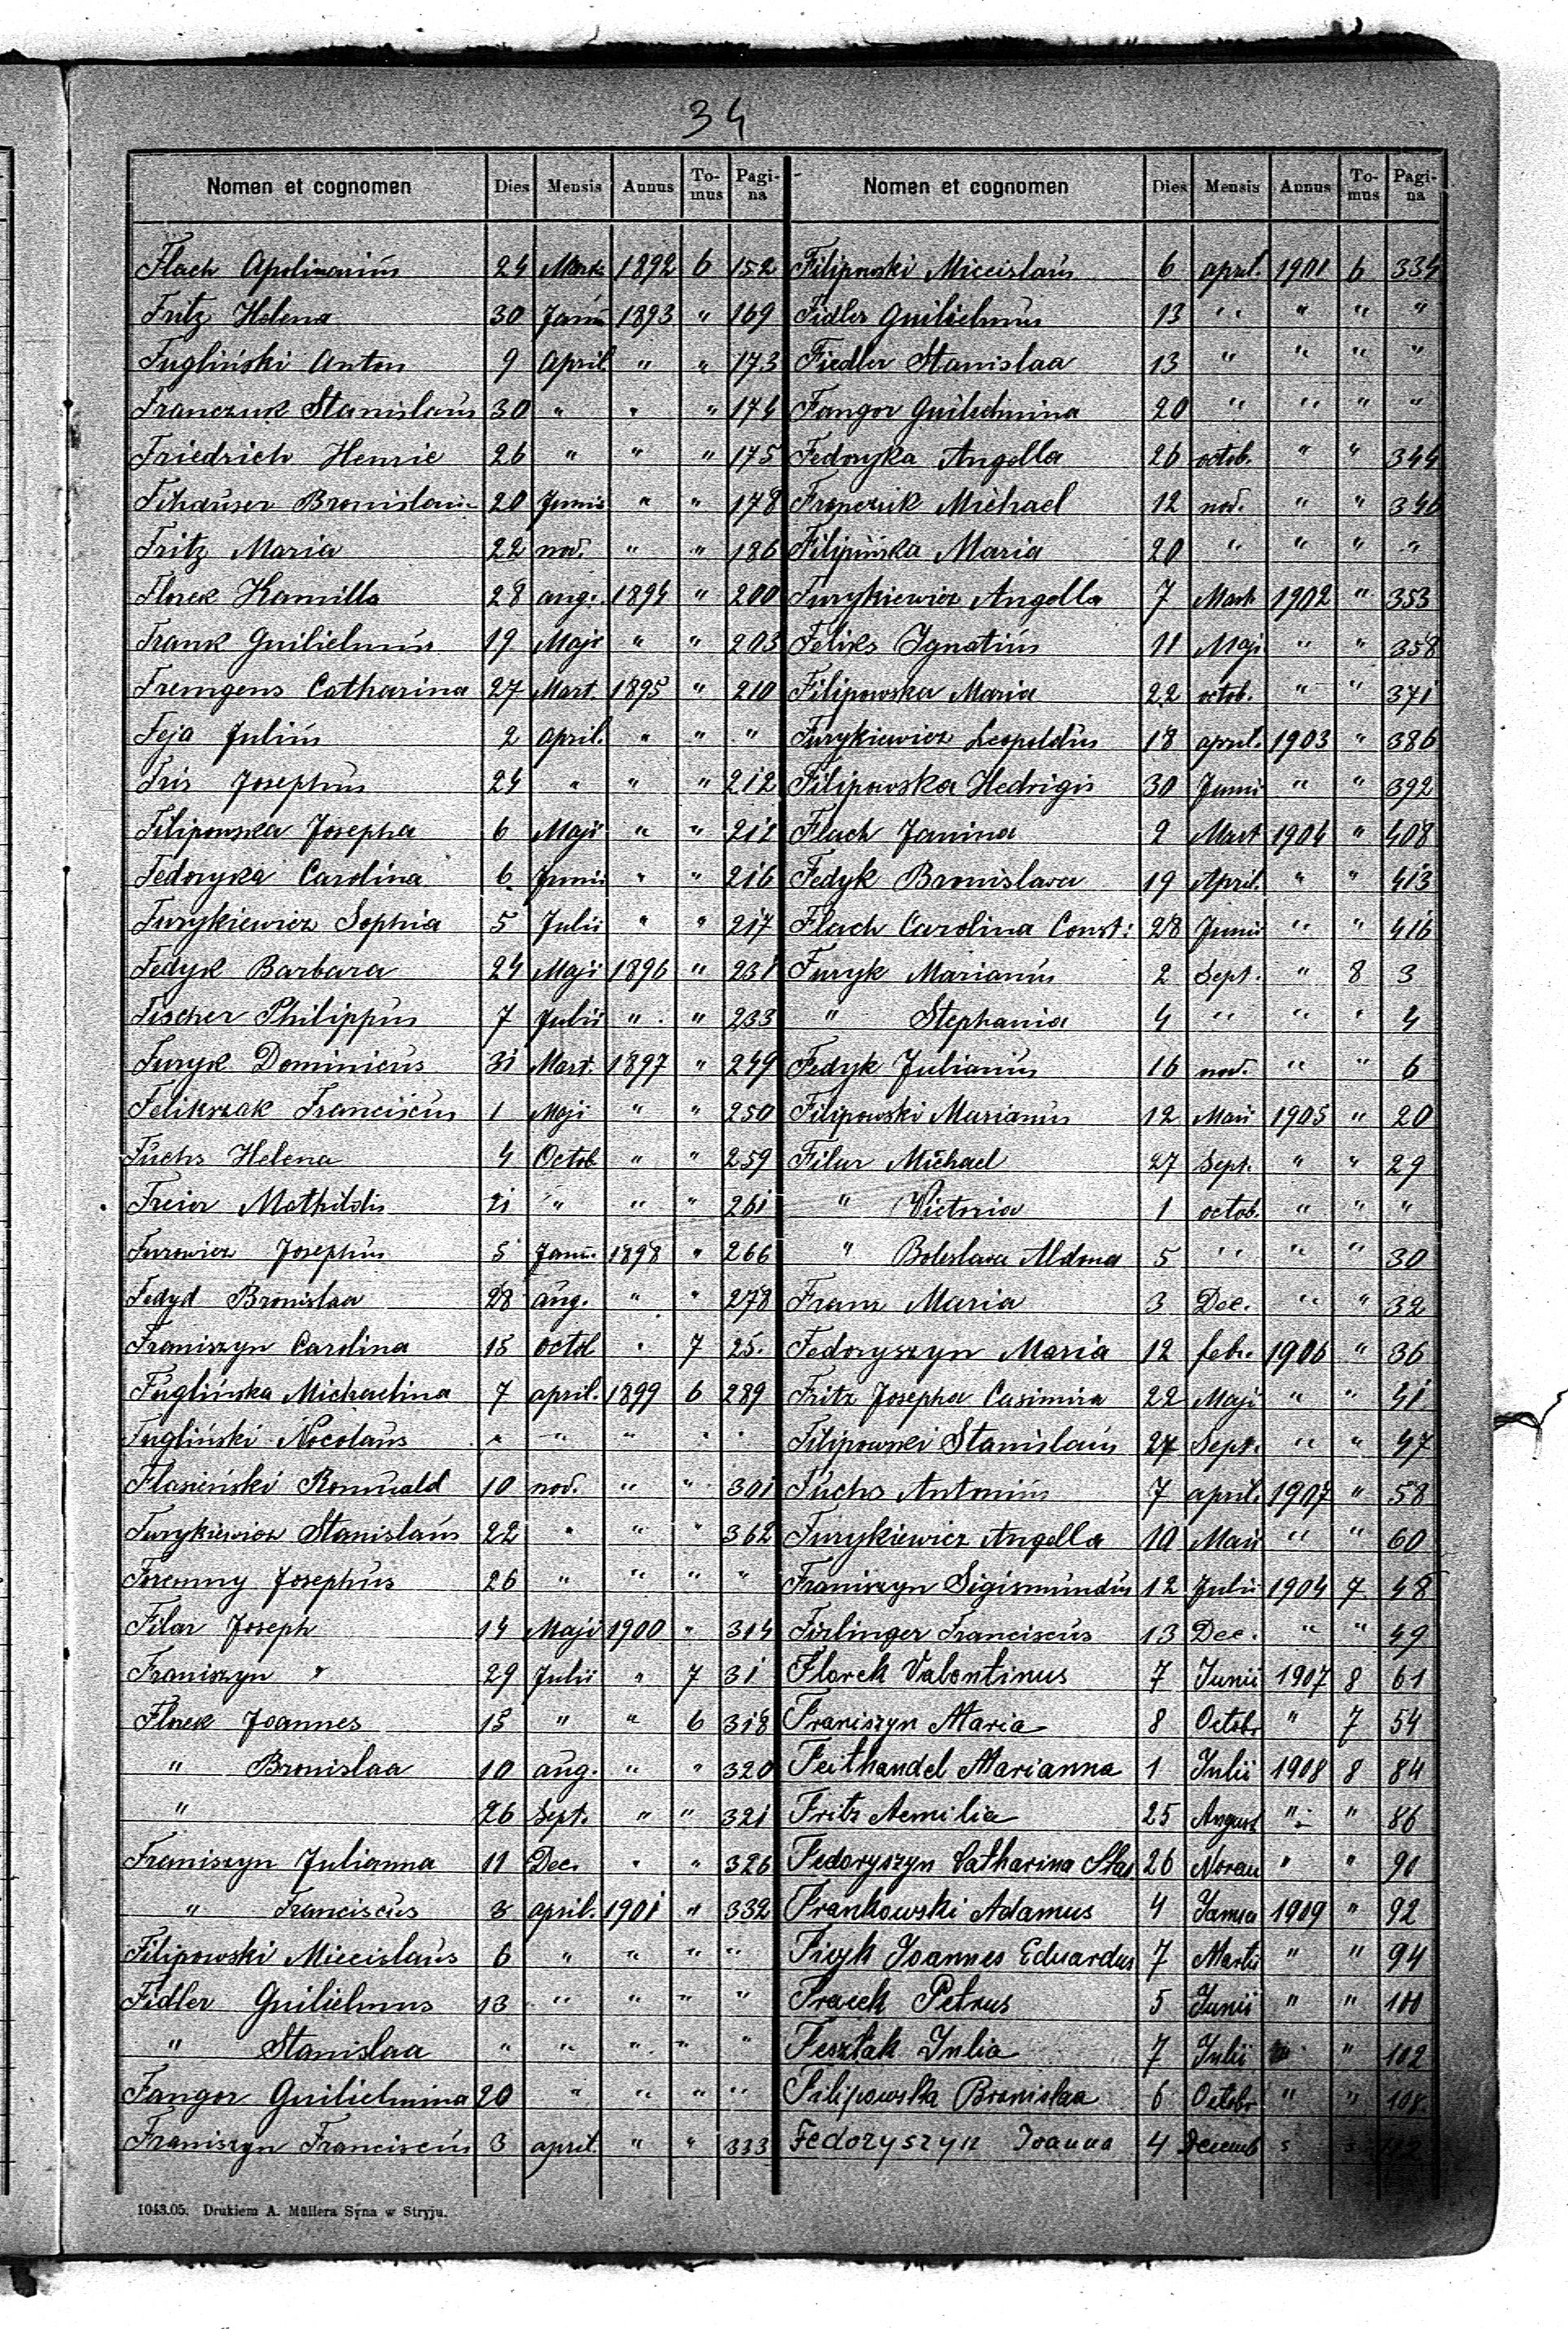 34
Nomen et cognomen Dies Mensis Annus To-mus Pagi-na
Flach Apolinarius 24 Mart. 1892 6 152
Fritz Helena 30 Janu 1893 " 169
Fugliński Anton 9 April " " 173
Franczuk Stanislaus 30 " " " 174
Friedrich Henric 26 " " " 175
Fihauser Bronislaus 20 Junii " " 178
Fritz Maria 22 nov. " " 186
Florek Kamilla 28 aug. 1894 " 200
Frank Guilielmus 19 Maji " " 203
Fremgens Catharina 27 Mart. 1895 " 210
Feja Julius 2 april. " " "
Fris Josephus 24 " " " 212
Filipowska Josepha 6 Maji " " 212
Fedoryka Carolina 6 Junii " " 216
Furykiewicz Sophia 5 Julii " " 217
Fedyk Barbara 24 Maji 1896 " 231
Fischer Philippus 7 Julii " " 233
Furyk Dominicus 31 Mart. 1897 " 249
Felikszak Franciscus 1 Maji " " 250
Fuchs Helena 4 Octob " " 259
Freier Mathildis 21 " " " 261
Furowicz Josephus 5 Janu. 1898 " 266
Fedyd Bronislaa 28 aug. " " 278
Franiszyn Carolina 15 octob " 7 25.
Fuglińska Michaelina 7 april. 1899 6 289
Fugliński Nocolaus " " " " "
Flasieński Romuald 10 nov. " " 301
Furykiewicz Stanislaus 22 " " " 362
Foremny Josephus 26 " " " "
Filar Joseph 14 Maji 1900 " 314
Franiszyn " 29 Julii " 7 31
Florek Joannes 15 " " 6 318
" Bronislaa 10 aug. " " 320
" 26 Sept. " " 321
Franiszyn Julianna 11 Dec. " " 326
" Franciscus 3 april. 1901 " 332
Filipowski Miecislaus 6 " " " "
Fidler Guilielmus 13 " " " "
" Stanislaa " " " " "
Fangor Guilielmina 20 " " " "
Franiszyn Franciscus 3 april. " " 333
1043.05. Drukiem A. Müllera Syna w Stryju.
Nomen et cognomen Dies Mensis Annus To-mus Pagi-na
Filipowski Miecislaus 6 april. 1901 6 334
Fidler Guilielmus 13 " " " "
Fiedler Stanislaa 13 " " " "
Fangor Guilielmina 20 " " " "
Fedoryka Angella 26 octob. " " 344
Franczuk Michael 12 nov. " " 346
Filipińska Maria 20 " " " "
Furykiewicz Angella 7 Mart 1902 " 353
Feliks Ignatius 11 Maji " " 358
Filipowska Maria 22 octob. " " 371
Furykiewicz Leopoldus 18 april. 1903 " 386
Filipowska Hedvigis 30 Junii " " 392
Flach Janina 2 Mart 1904 " 408
Fedyk Bronislava 19 April. " " 413
Flach Carolina Const: 28 Junii " " 416
Furyk Marianus 2 Sept. " 8 3
" Stephania 4 " " " 4
Fedyk Julianus 16 nov. " " 6
Filipowski Marianus 12 Maii 1905 " 20
Filar Michael 27 Sept. " " 29
" Victoria 1 octob. " " "
" Boleslava Aldona 5 " " " 30
Franz Maria 3 Dec. " " 32
Fedoryszyn Maria 12 febr. 1906 " 36
Fritz Josepha Casimira 22 Maji " " 41
Filipowski Stanislaus 27 Sept. " " 47
Fuchs Antonius 7 april. 1907 " 58
Furykiewicz Angella 10 Maii " " 60
Franiszyn Sigismundus 12 Julii 1904 7 48
Firlinger Franciscus 13 Dec. " " 49
Florek Valentinus 7 Junii 1907 8 61
Franiszyn Maria 8 Octobr " 7 54
Feithandel Marianna 1 Julii 1908 8 84
Fritz Aemilia 25 August " " 86
Fedoryszyn Catharina Stas 26 Novem " " 90
Frankowski Adamus 4 Janua 1909 " 92
Joannes Eduardus 7 Martii " " 94
Fracek Petrus 5 Junii " " 100
Fesztak Julia 7 Julii " 102
Filipowska Bronislaa 6 Octobr " " 108
Fedoryszyn Joanna 4 Decemb